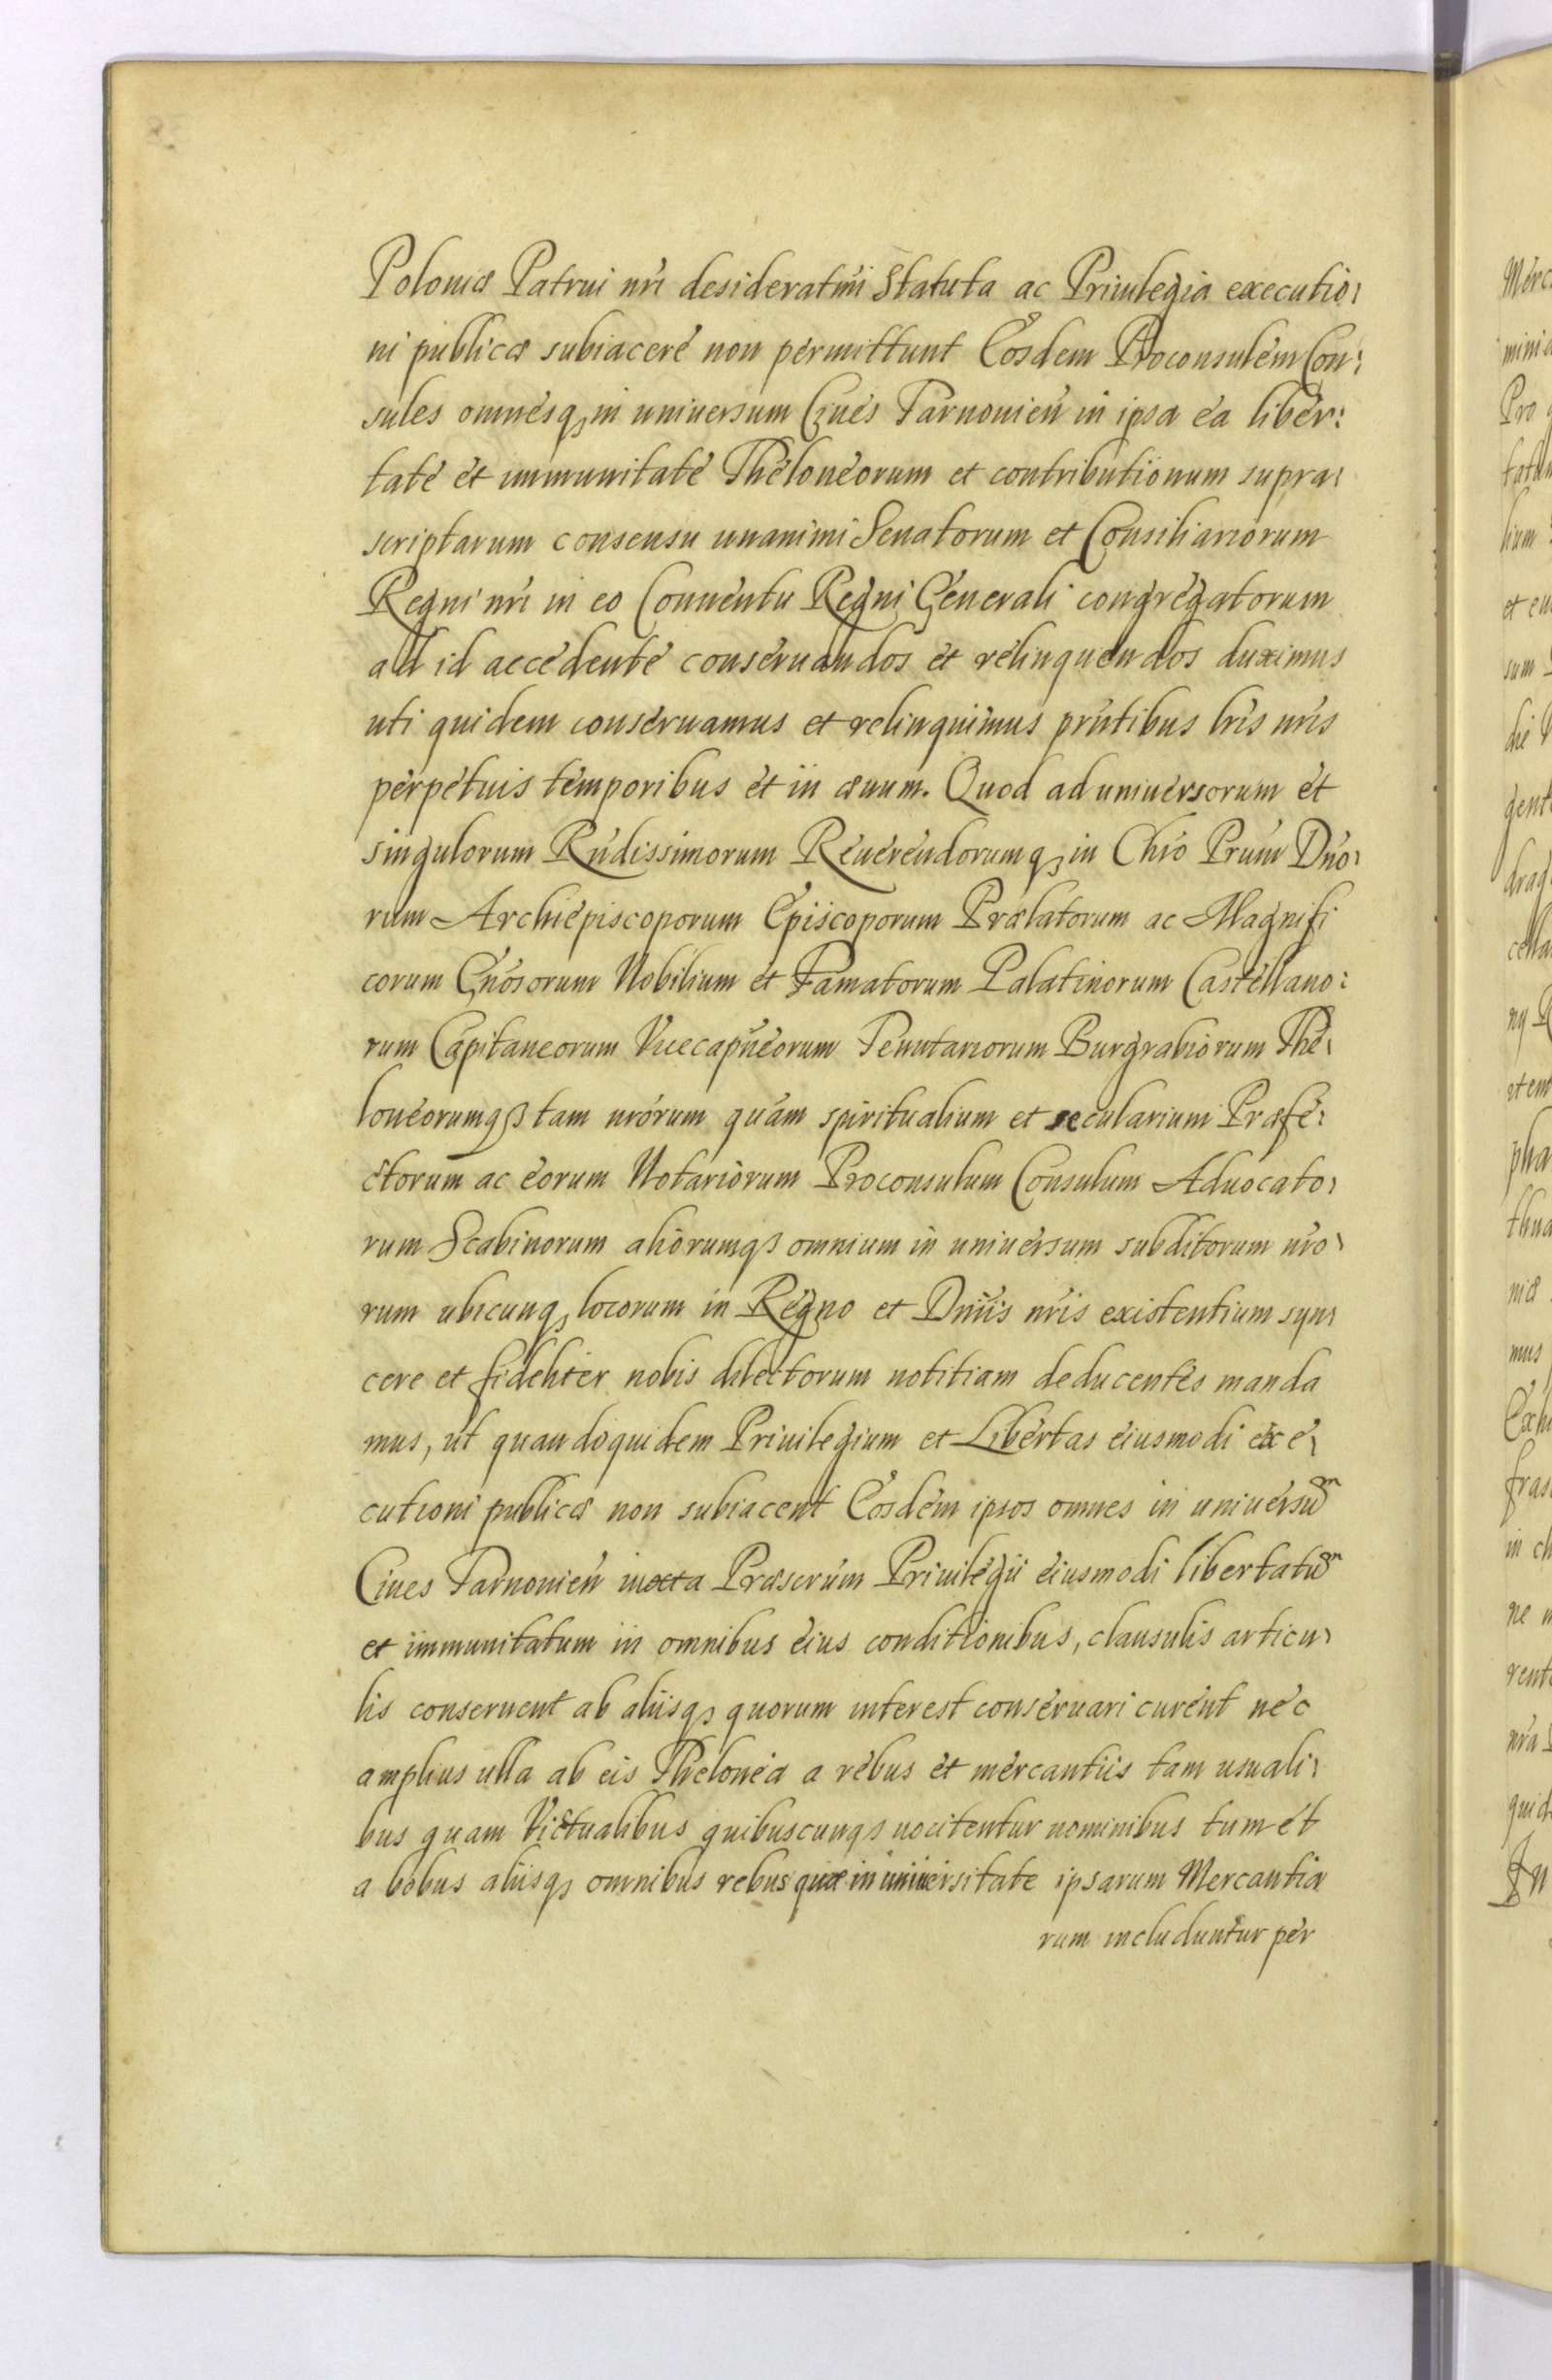 Poloniæ Patrui nr̃i desideratmi Statuta ac Priuilegia executio:
ni publicæ subiacere non permittunt Eosdem Proconsulem Con:
sules omnesq₃ in uniuersum Ciues Tarnonień in ipsa ea liber:
tate et immunitate Theloneorum et contributionum supra:
scriptarum consensu unanimi Senatorum et Consiliariorum
Regni nr̃i in eo Conuentu Regni Generali congregatorum
ad id accedente conseruandos et relinquendos duximus
uti quidem conseruamus et relinquimus pr̃ntibus lr̃is nr̃is
perpetuis temporibus et in æuum. Quod ad uniuersorum et
singulorum Rńdissimorum Reuerendorumq₃ in Chr̃o Prum Dńo:
rum Archiepiscoporum Episcoporum Prælatorum ac Magnifi
corum Gńosorum Nobilium et Famatorum Palatinorum Castellano:
rum Capitaneorum Vicecapńeorum Tenutariorum Burgrabiorum The:
loneorumq₃ tam nr̃orum quam spiritualium et secularium Præfe:
ctorum ac eorum Notariorum Proconsulum Consulum Aduocato:
rum Scabinorum aliorumq₃ omnium in uniuersum subditorum nr̃o:
rum ubicunq₃ locorum in Regno et Dńiis nr̃is existentium syn:
cere et fideliter nobis dilectorum notitiam deducentes manda
mus, ut quandoquidem Priuilegium et Libertas eiusmodi exe:
cutioni publicæ non subiacent Eosdem ipsos omnes in uniuersum
Ciues Tarnonień iuxta Præscrũm Priuilegii eiusmodi libertatum
et immunitatum in omnibus eius conditionibus, clausulis articu:
lis conseruent ab aliisq₃ quorum interest conseruari curent nec
amplius ulla ab eis Thelonea a rebus et mercantiis tam usuali:
bus quam Victualibus quibuscunq₃ uocitentur nominibus tum et
a bobus aliisq₃ omnibus rebus quæ in uniuersitate ipsarum Mercantia
rum includuntur per